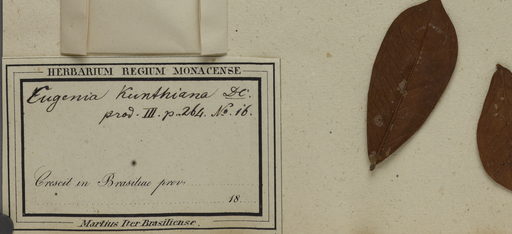 HERBARIUM REGIUM MONACENSE
Eugenia Kunthiana DC.
prod. III. p. 264. No. 16.
Crescit in Brasiliae prov.
18
Martius Iter Brasiliense.